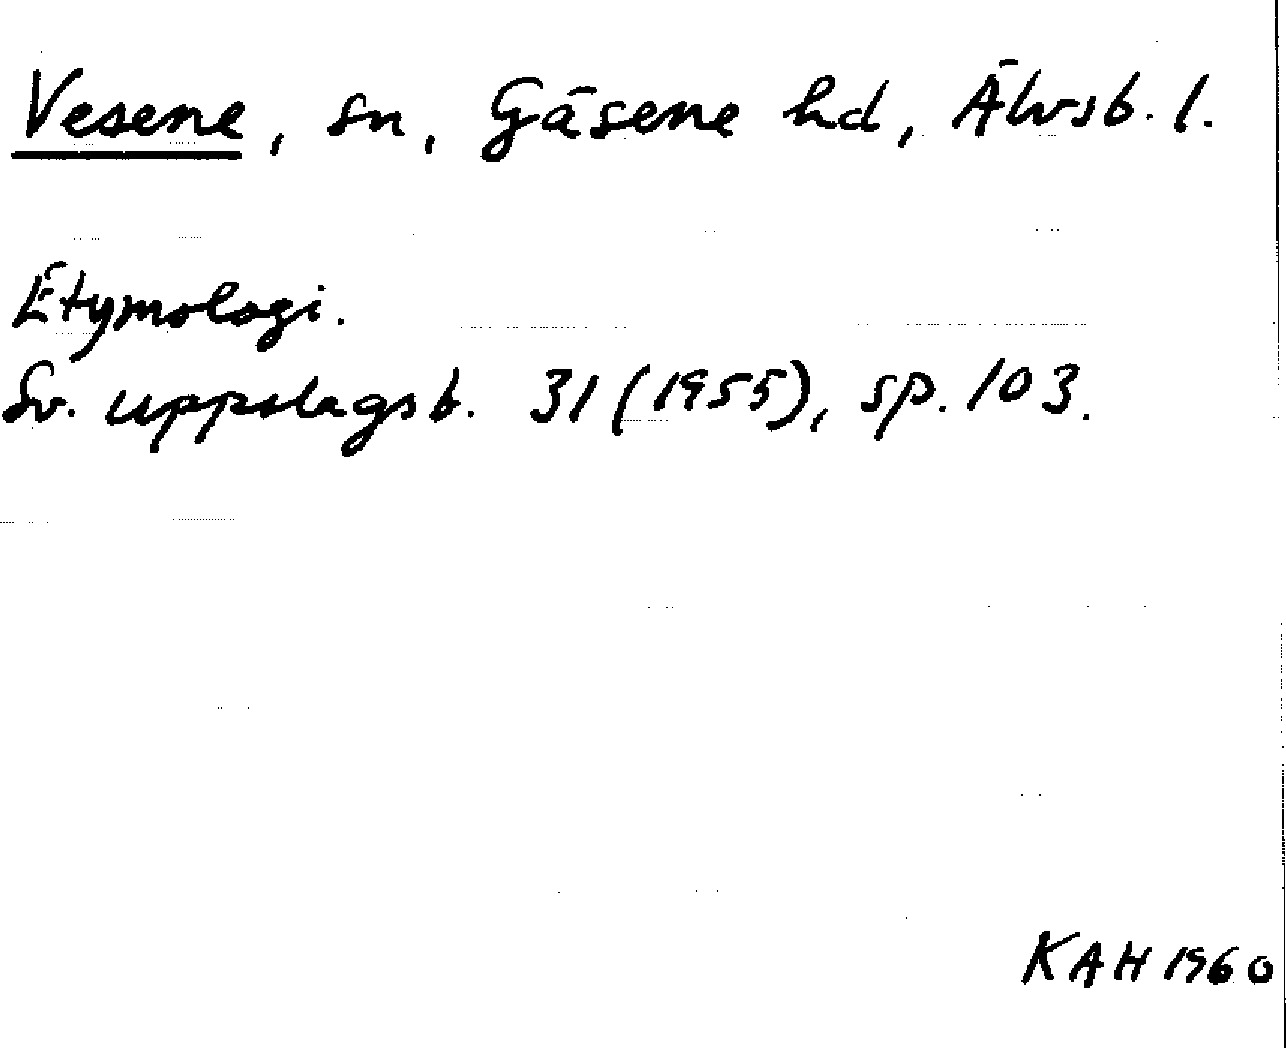 Vesene, sn, Gäsene hd, Älvsb. l.
Etymologi.
Sv. uppslagsb. 31 (1955), sp. 103.
KAH 1960